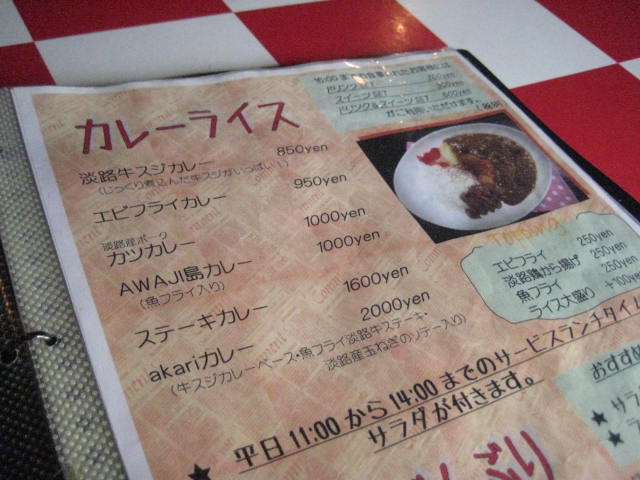 カレーライス
淡路牛スジカレー 850yen
(じっくり煮込んだ牛スジがいっぱい!)
エビフライカレー 950yen
淡路産ポーク
カツカレー 1000yen
AWAJI島カレー 1000yen
(魚フライ入り)
ステーキカレー 1600yen
akariカレー 2000yen
(牛スジカレーベース・魚フライ淡路牛ステーキ・
淡路産玉ねぎのソテー入り)
16:00までお食事されたお客様には
ドリンクSET
スイーツSET 300yen
ドリンク&スイーツSET 500yen
がご利用いただけます。
Topping
エビフライ 250yen
淡路鶏から揚げ 250yen
魚フライ 250yen
ライス大盛り +100yen
平日11:00から14:00までのサービスランチタイム
サラダが付きます。
おすすめ
★サラ
★